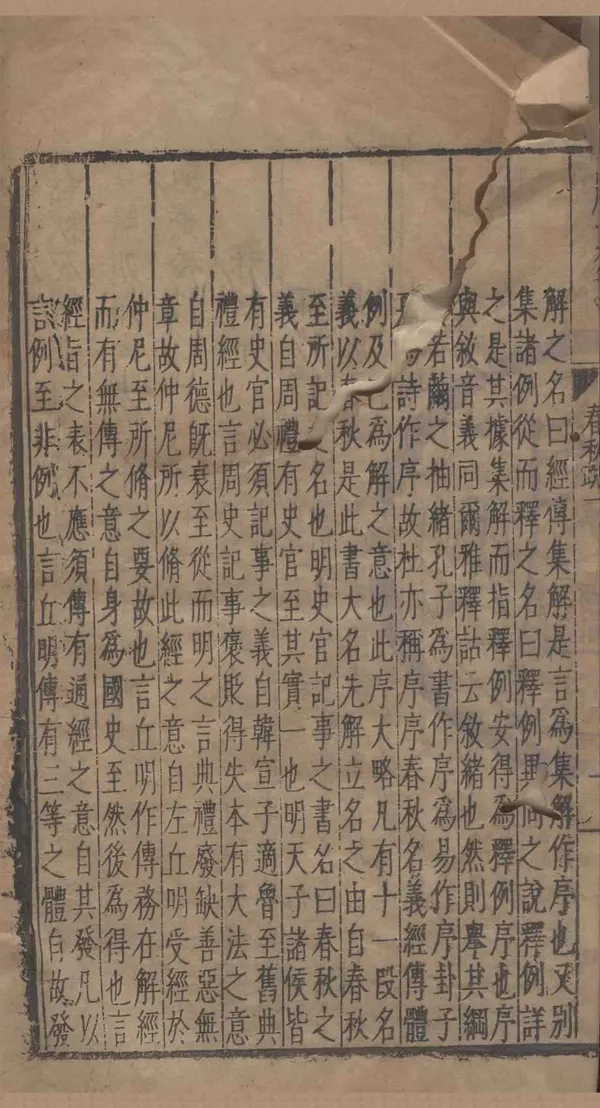 春秋疏
解之名曰經傳集解是言為集解作序也又別
集諸例從而釋之名曰釋例異同之說釋例詳
之是其據集解而指釋例安得為釋例序也序
與敘音義同爾雅釋詁云敘緒也然則舉其綱
若繭之抽緒孔子為書作序為易作序卦子
詩作序故杜亦稱序序春秋名義經傳體
例及己為解之意也此序大略凡有十一段名
義以春秋是此書大名先解立名之由自春秋
至所記之名也明史官記事之書名曰春秋之
義自周禮有史官至其實一也明天子諸侯皆
有史官必須記事之義自韓宣子適魯至舊典
禮經也言周史記事褒貶得失本有大法之意
自周德既衰至從而明之言典禮廢缺善惡無
章故仲尼所以脩此經之意自左丘明受經於
仲尼至所脩之要故也言丘明作傳務在解經
而有無傳之意自身為國史至然後為得也言
經旨之表不應須傳有通經之意自其發凡以
言例至非例也言丘明傳有三等之體自故發